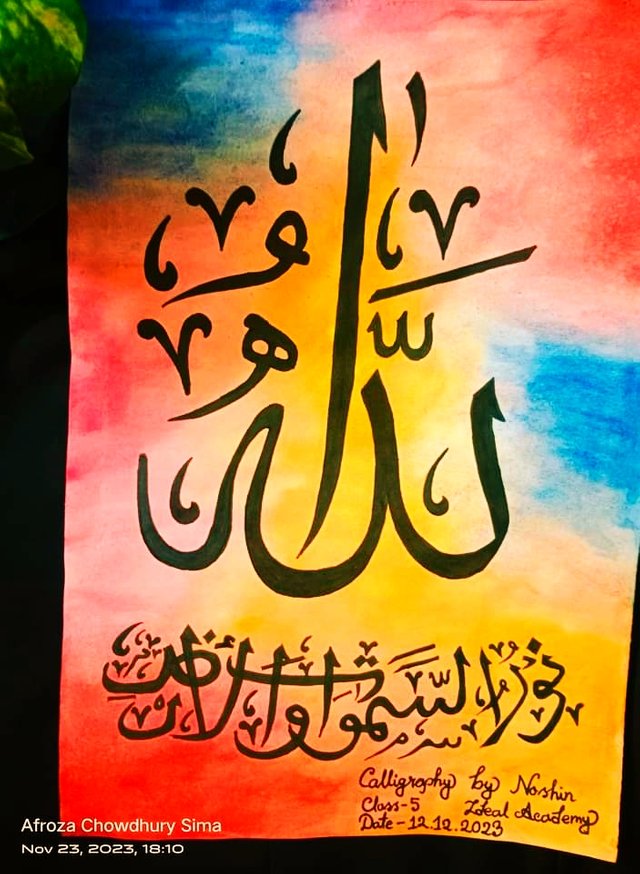 الله
نور السموات والأرض
Calligrophy by Noshin
Class-5 Ideal Academy
Date-12.12.2023
Afroza Chowdhury Sima
Nov 23, 2023, 18:10